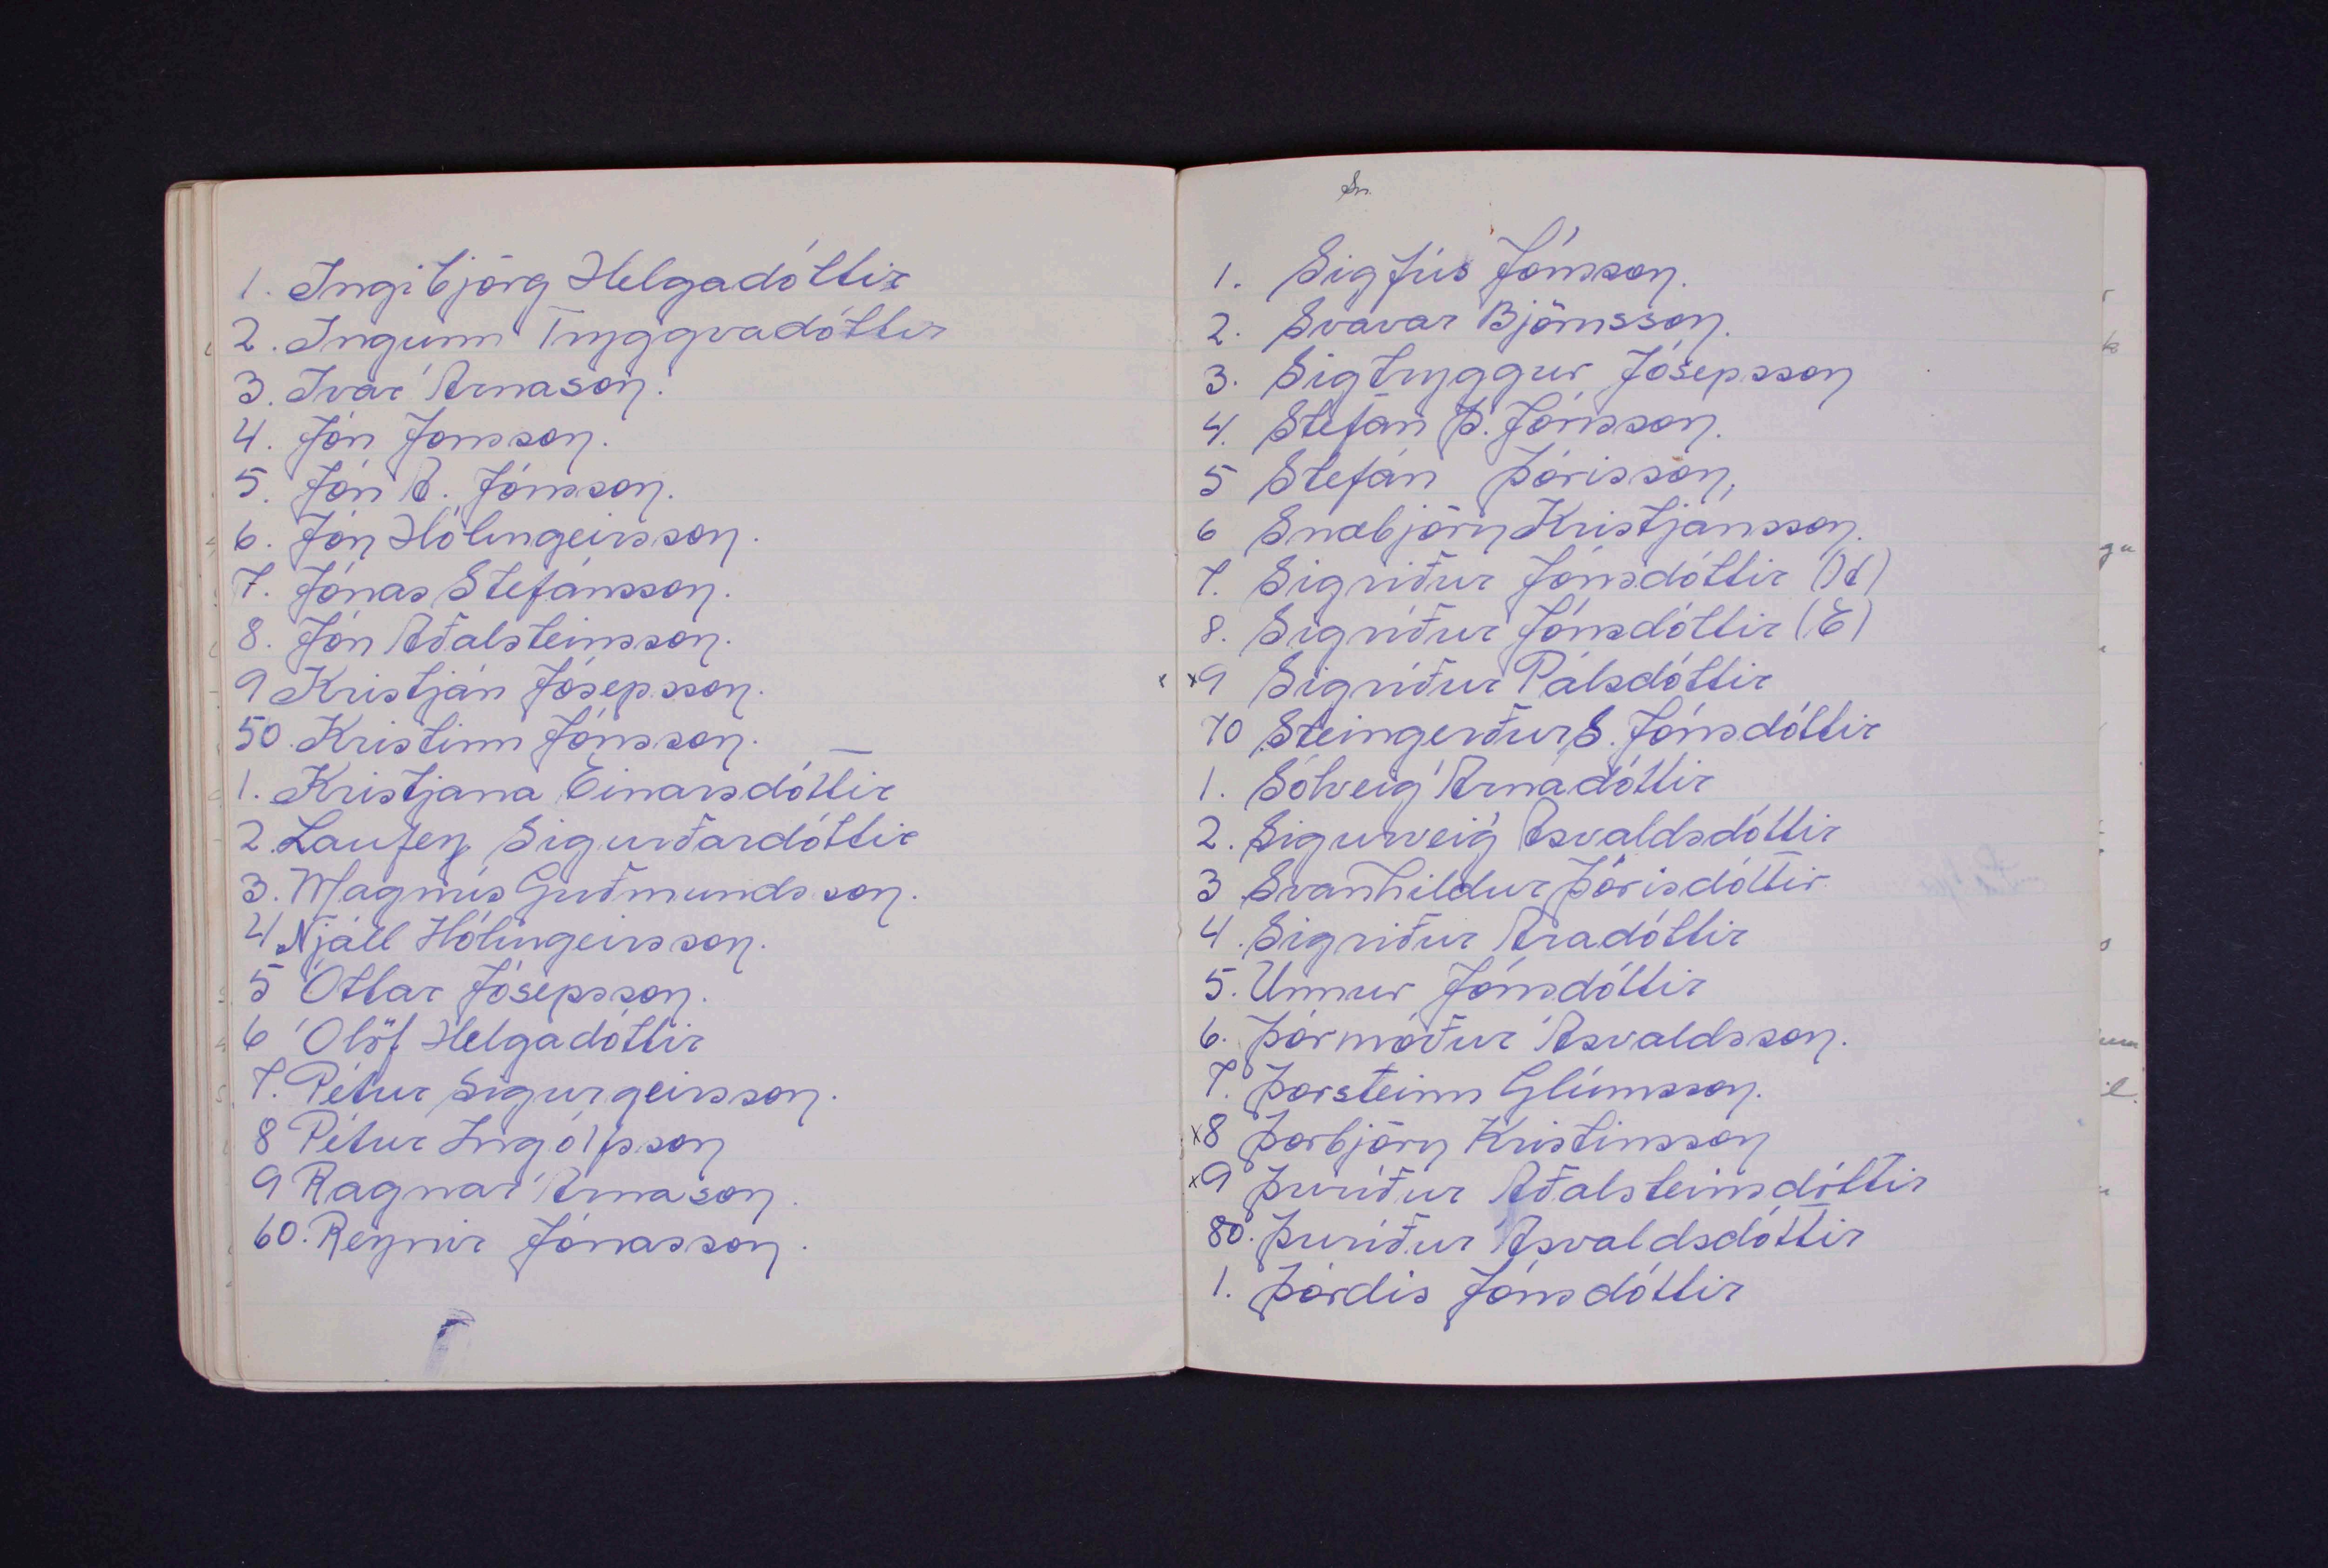 1. Ingibjörg Helgadóttir
2. Ingunn Tryggvadóttir
3. Ivar Árnason.
4. Jón Jonsson.
5. Jón A. Jónsson.
6. Jón Hólmgeirsson.
7. Jónas Stefánsson.
8. Jón Aðalsteinsson.
9 Kristján Jósepsson.
50. Kristinn Jónsson.
1. Kristjana Einarsdóttir
2. Laufey Sigurðardóttir
3. Magnús Guðmundsson.
4 Njáll Hólmgeirsson.
5 Óttar Jósepsson.
6 Ólöf Helgadóttir
7. Pétur Sigurgeirsson.
8 Pétur Ingólfsson
9 Ragnar Árnason.
60. Reynir Jónasson.
Sn.
1. Sigfús Jónsson.
2. Svavar Björnsson.
3. Sigtryggur Jósepsson
4. Stefán Þ. Jónsson.
5 Stefán Þórisson.
6 Snæbjörn Kristjánsson.
7. Sigríður Jónsdóttir (H)
8. Sigríður Jónsdóttir (E)
x x9 Sigríður Pálsdóttir
70 Steingerður S. Jónsdóttir
1. Sólveig Árnadóttir
2. Sigurveig Ásvaldsdóttir
3 Svanhildur Þórisdóttir
4. Sigríður Aradóttir
5. Unnur Jónsdóttir
6. Þórmóður Ásvaldsson.
7. Þorsteinn Glúmsson.
x8 Þorbjörn Kristinsson
x9 Þuríður Aðalsteinsdóttir
80. Þuríður Ásvaldsdóttir
1. Þórdís Jónsdóttir